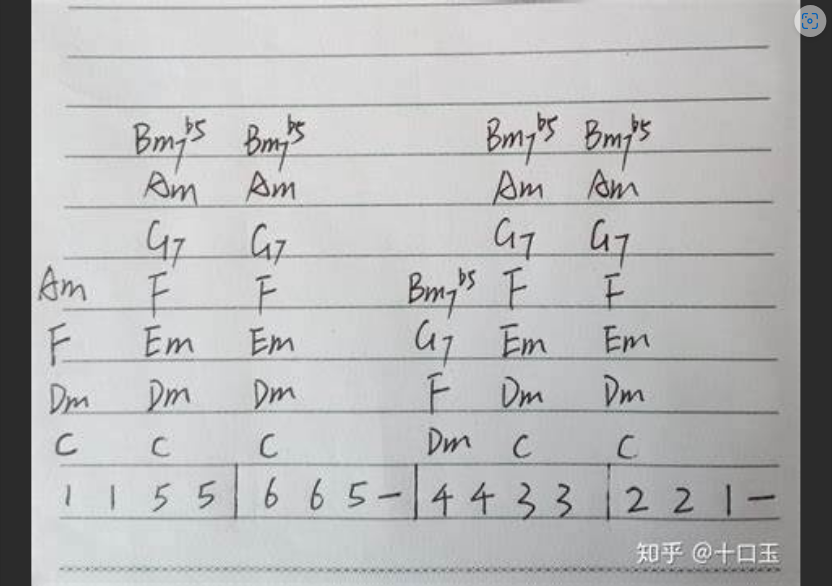 Bm7b5 Bm7b5 Bm7b5 Bm7b5
Am Am Am Am
G7 G7 G7 G7
Am F F Bm7b5 F F
F Em Em G7 Em Em
Dm Dm Dm F Dm Dm
C C C Dm C C
1 1 5 5 | 6 6 5 – | 4 4 3 3 | 2 2 1 –
知乎 @十口玉